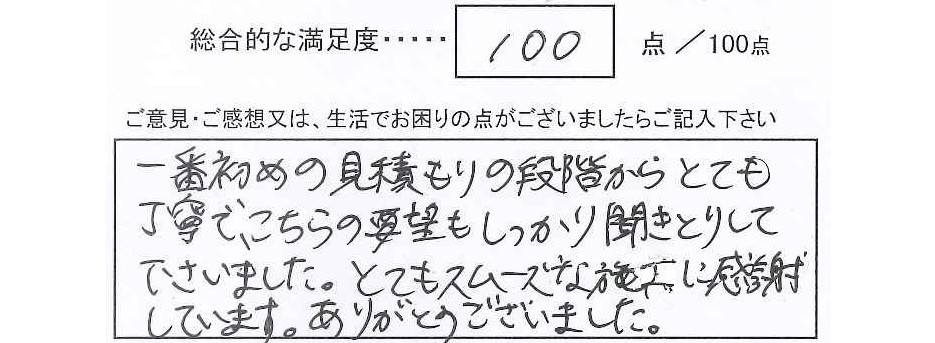 総合的な満足度‥‥‥ 100 点 ／100点
ご意見・ご感想又は、生活でお困りの点がございましたらご記入下さい
一番初めの見積もりの段階からとても
丁寧で、こちらの要望もしっかり聞きとりして
下さいました。とてもスムーズな施工に感謝
しています。ありがとうございました。